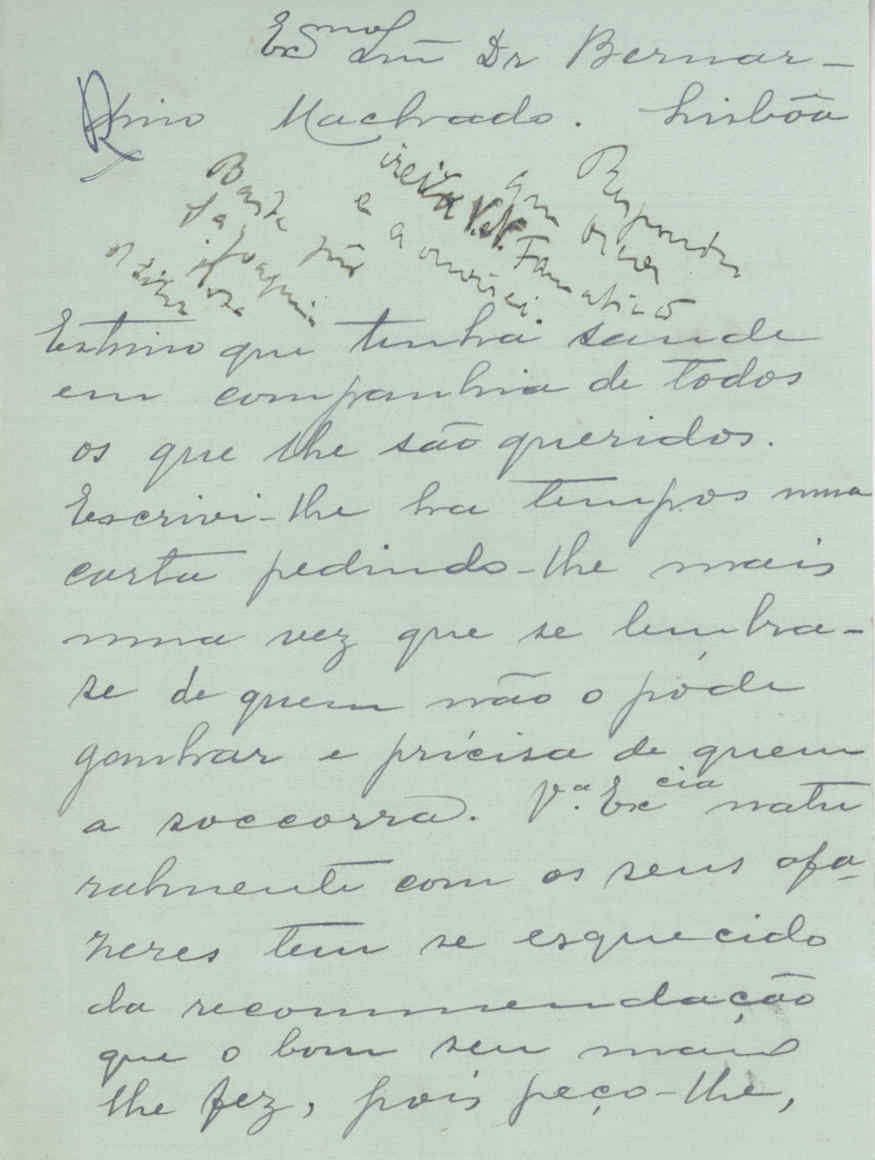 Exmo Snr Dr Bernar-
dino Machado. Lisbôa
Respondeu
que
irei a V. N. Famalicão
e a ouvirei.
Basta
Joaquina
Estimo que tenha saude
em companhia de todos
os que lhe são queridos.
Escrivi-lhe ha tempos uma
carta pedindo-lhe mais
uma vez que se lembra-
se de quem não o póde
ganhar e précisa de quem
a soccorra. Va. Excia natu
ralmente com os seus afa-
zeres tem se esquecido
da recommendação
que o bom seu mano
lhe fez, pois peço-lhe,